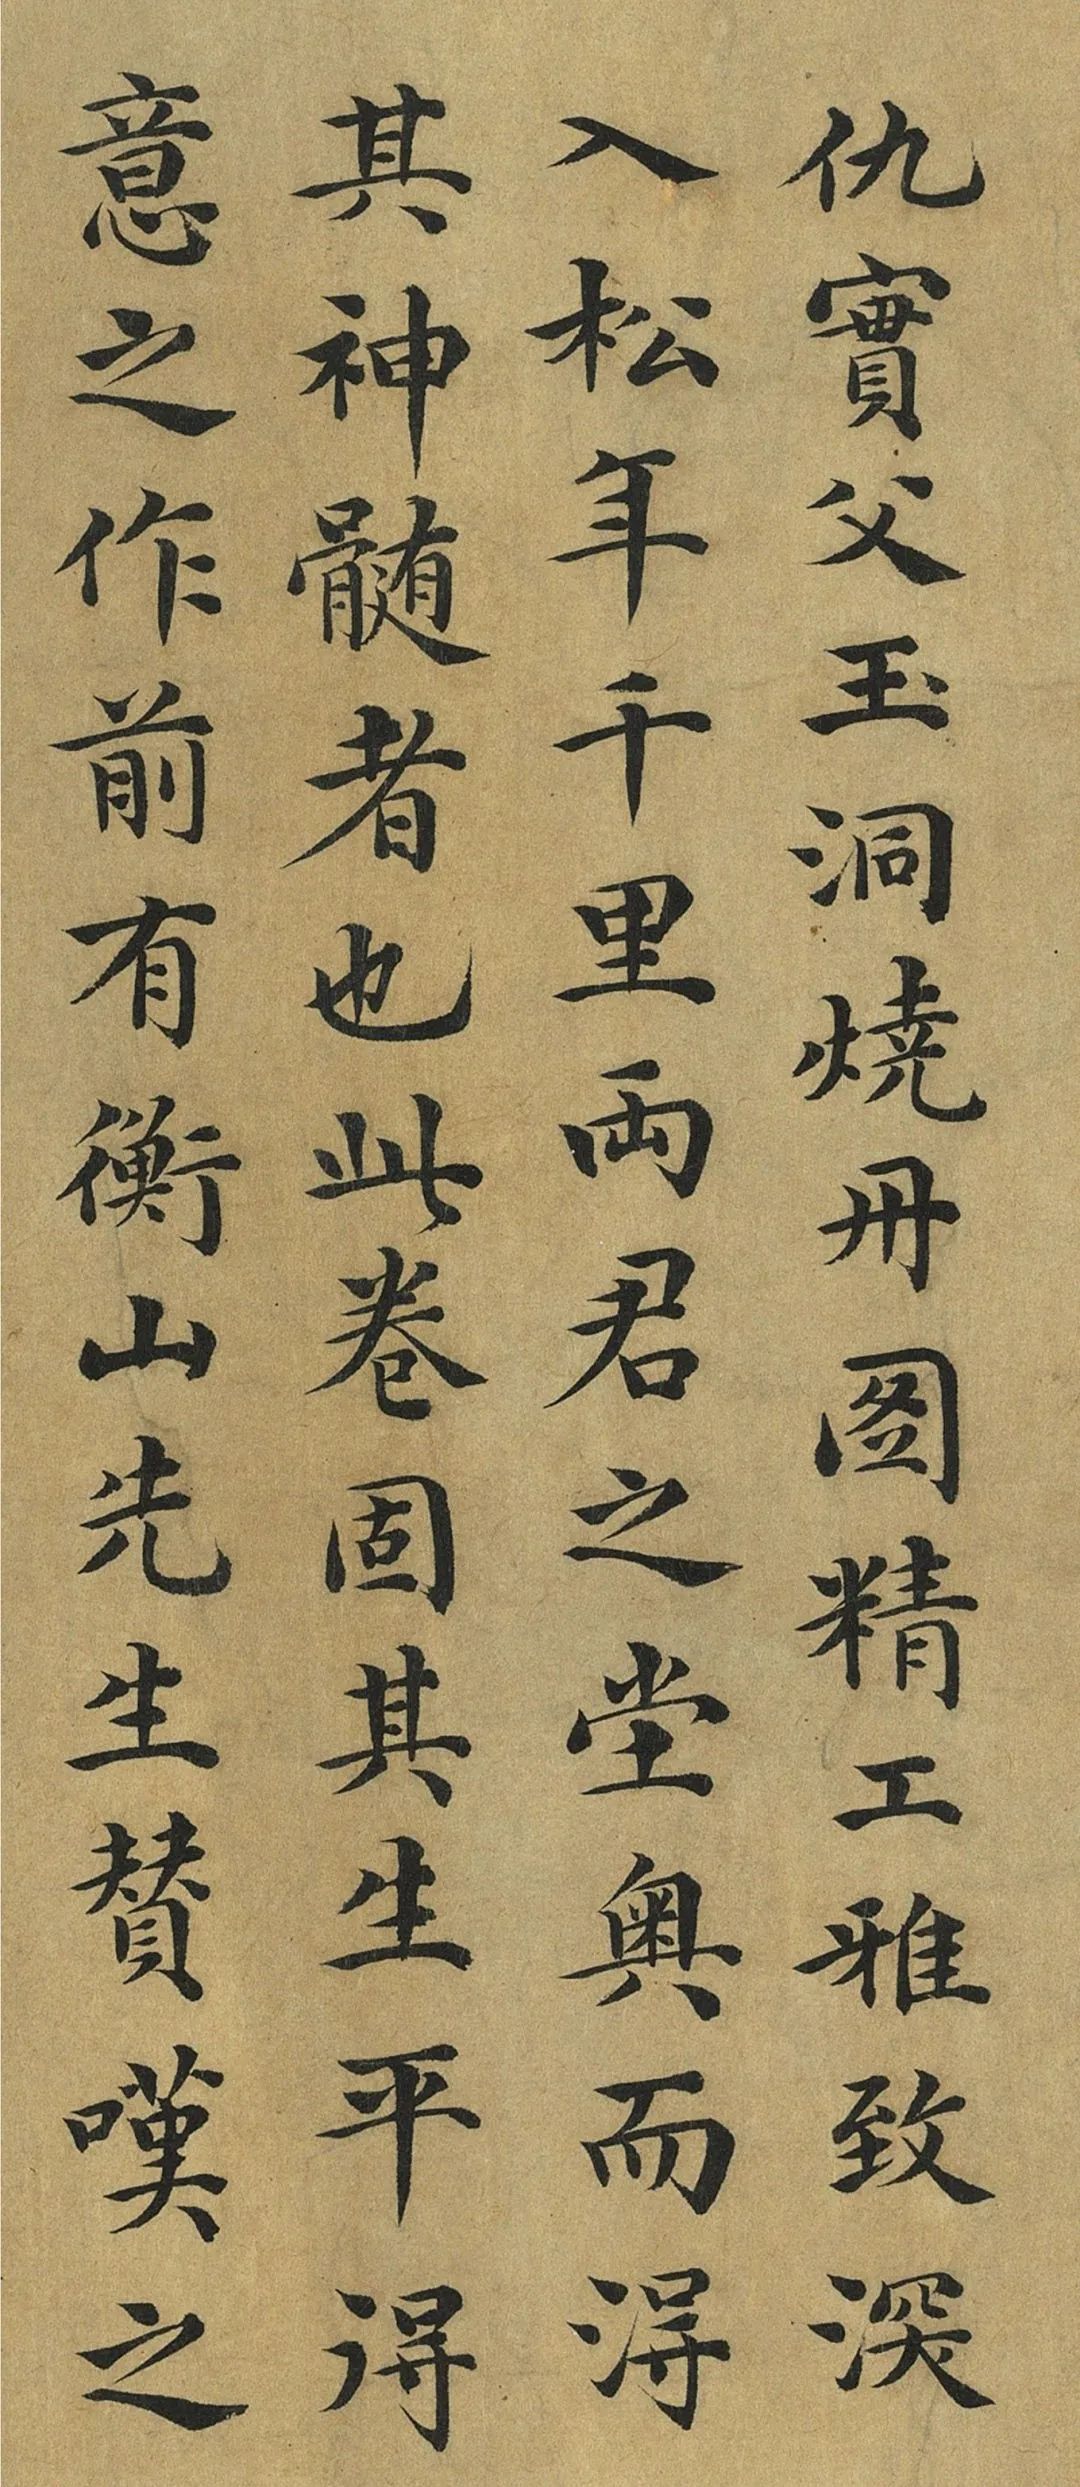 仇實父玉洞燒丹圖精工雅致深
入松年千里兩君之堂奧而得
其神髓者也此卷固其生平得
意之作前有衡山先生贊嘆之